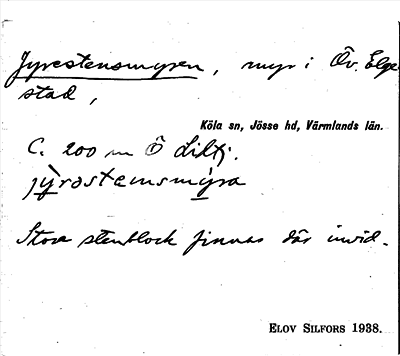 Jyrestensmyren, myr i Öv. Elge
stad,
Köla sn, Jösse hd, Värmlands län.
C. 200 m Ö Liltj.
jy̱rostæinsmy̱ra
Stora stenblock finnas där invid.
ELOV SILFORS 1938.